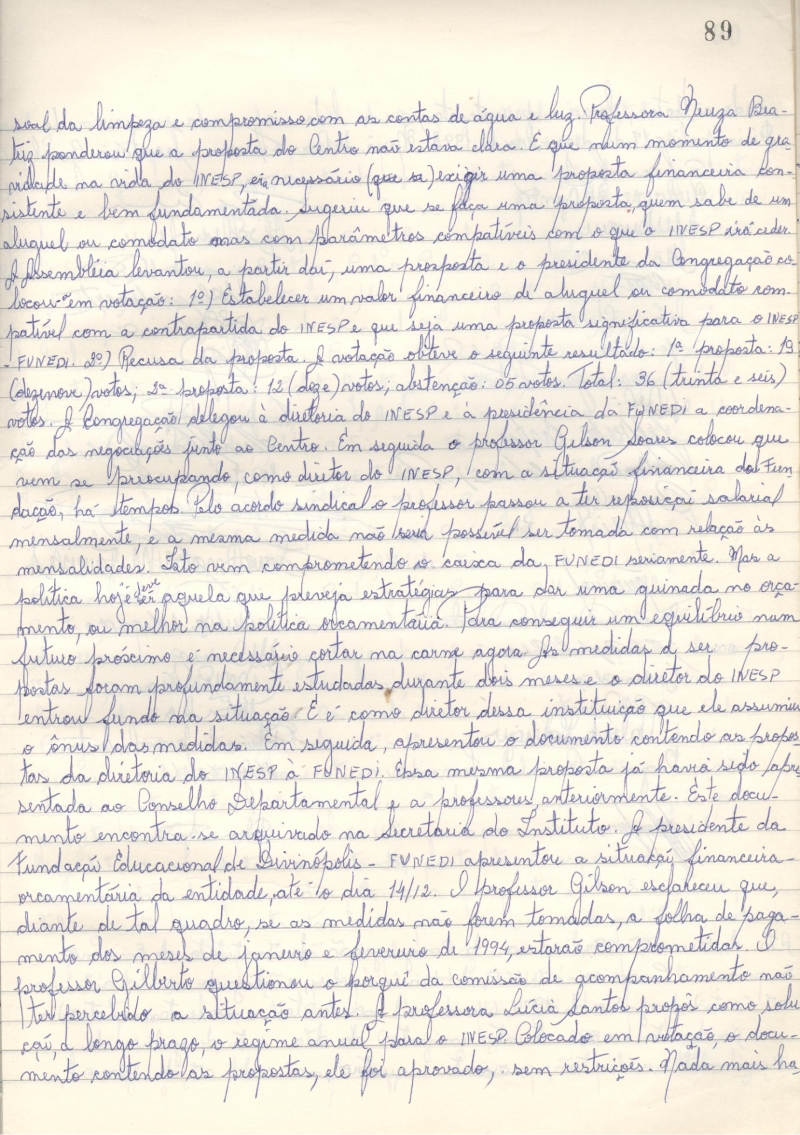 89
soal da limpeza e compromisso com as contas de água e luz. Professora Neuza Bea-
triz ponderou que a proposta do Centro não estava clara. E que num momento de gra-
vidade na vida do INESP, era necessário (que se) exigir uma proposta financeira con-
sistente e bem fundamentada. Sugeriu que se faça uma proposta, quem sabe de um
aluguel ou comodato mas com parâmetros compatíveis com o que o INESP irá ceder.
A Assembléia levantou, a partir daí, uma prosposta e o presidente da Congregação co-
locou-a em votação: 1º) Estabelecer um valor financeiro de aluguel ou comodato com-
patível com a contrapartida do INESP e que seja uma proposta significativa para o INESP
- FUNEDI. 2º) Recusa da proposta. A votação obteve o seguinte resultado: 1ª proposta: 19
(dezenove) votos; 2ª proposta: 12 (doze) votos; abstenção: 05 votos. Total: 36 (trinta e seis)
votos. A Congregação delegou à diretoria do INESP e à presidência da FUNEDI a coordena-
ção das negociações junto ao Centro. Em seguida o professor Gilson Soares colocou que
vem se preocupando, como diretor do INESP, com a situaçã financeira da Fun-
dação, há tempos. Pelo acordo sindical o professor passou a ter reposiçã salarial
mensalmente, e a mesma medida não seria possível ser tomada com relação às
mensalidades. Isto vem comprometendo o caixa da FUNEDI seriamente. Mas a
política hoje deve ser aquela que preveja estratégias para dar uma guinada no orça-
mento, ou melhor na política orcamentária. Para conseguir um equilíbrio num
futuro próscimo é necessário cortar na carne agora. As medidas a ser pro-
postas foram profundamente estudadas durante dois meses e o diretor do INESP
entrou fundo na situação. E é como diretor dessa instituição que ele assumiu
o ônus das medidas. Em seguida, apresentou o documento contendo as propos-
tas da diretoria do INESP à FUNEDI. Essa mesma proposta já havia sido apre-
sentada ao Conselho Departamental e a professores, anteriormente. Este docu-
mento encontra-se arquivado na Secretaria do Instituto. A presidente da
Fundaçã Educacional de Divinópolis - FUNEDI apresentou a situaçã financeira-
orcamentária da entidade, até o dia 14/12. O professor Gilson esclareceu que,
diante de tal quadro, se as medidas não forem tomadas, a folha de paga-
mento dos meses de janeiro e fevereiro de 1994, estarão comprometidas. O
professor Gilberto questionou o porquê da comissão de acompanhamento não
ter percebido a situação antes. A professora Lúcia Santos propôs como solu
çã, a longo prazo, o regime anual para o INESP. Colocado em votação, o docu-
mento contendo as propostas, ele foi aprovado, sem restrições. Nada mais ha